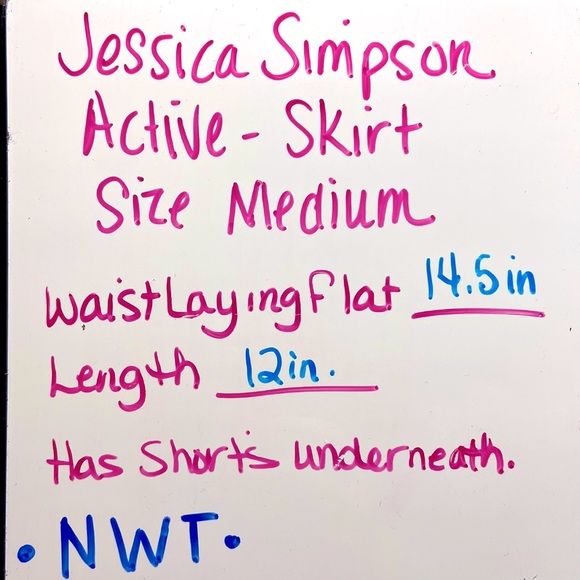 Jessica Simpson
Active - Skirt
Size Medium
Waist Laying Flat 14.5 in
Length 12 in.
Has Shorts underneath.
• NWT •